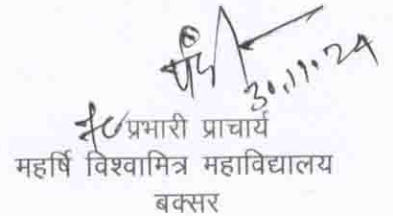 30.11.24
प्रभारी प्राचार्य
महर्षि विश्वामित्र महाविद्यालय
बक्सर